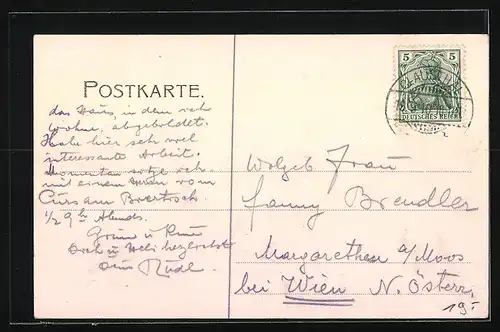 POSTKARTE.
das Haus, in dem ich
wohne, abgebildet.
Habe hier sehr viel
interessante Arbeit.
Momentan sitze ich
mit einem vom
Curs am
1/2 9 h Abends.
Grüsse u
Dich u herzlichst
dein Rudl.
5 5
DEUTSCHES REICH
Wolgeb Frau
Fanny Brendler
Margarethen a/Moos
bei Wien N. Österr.
19-